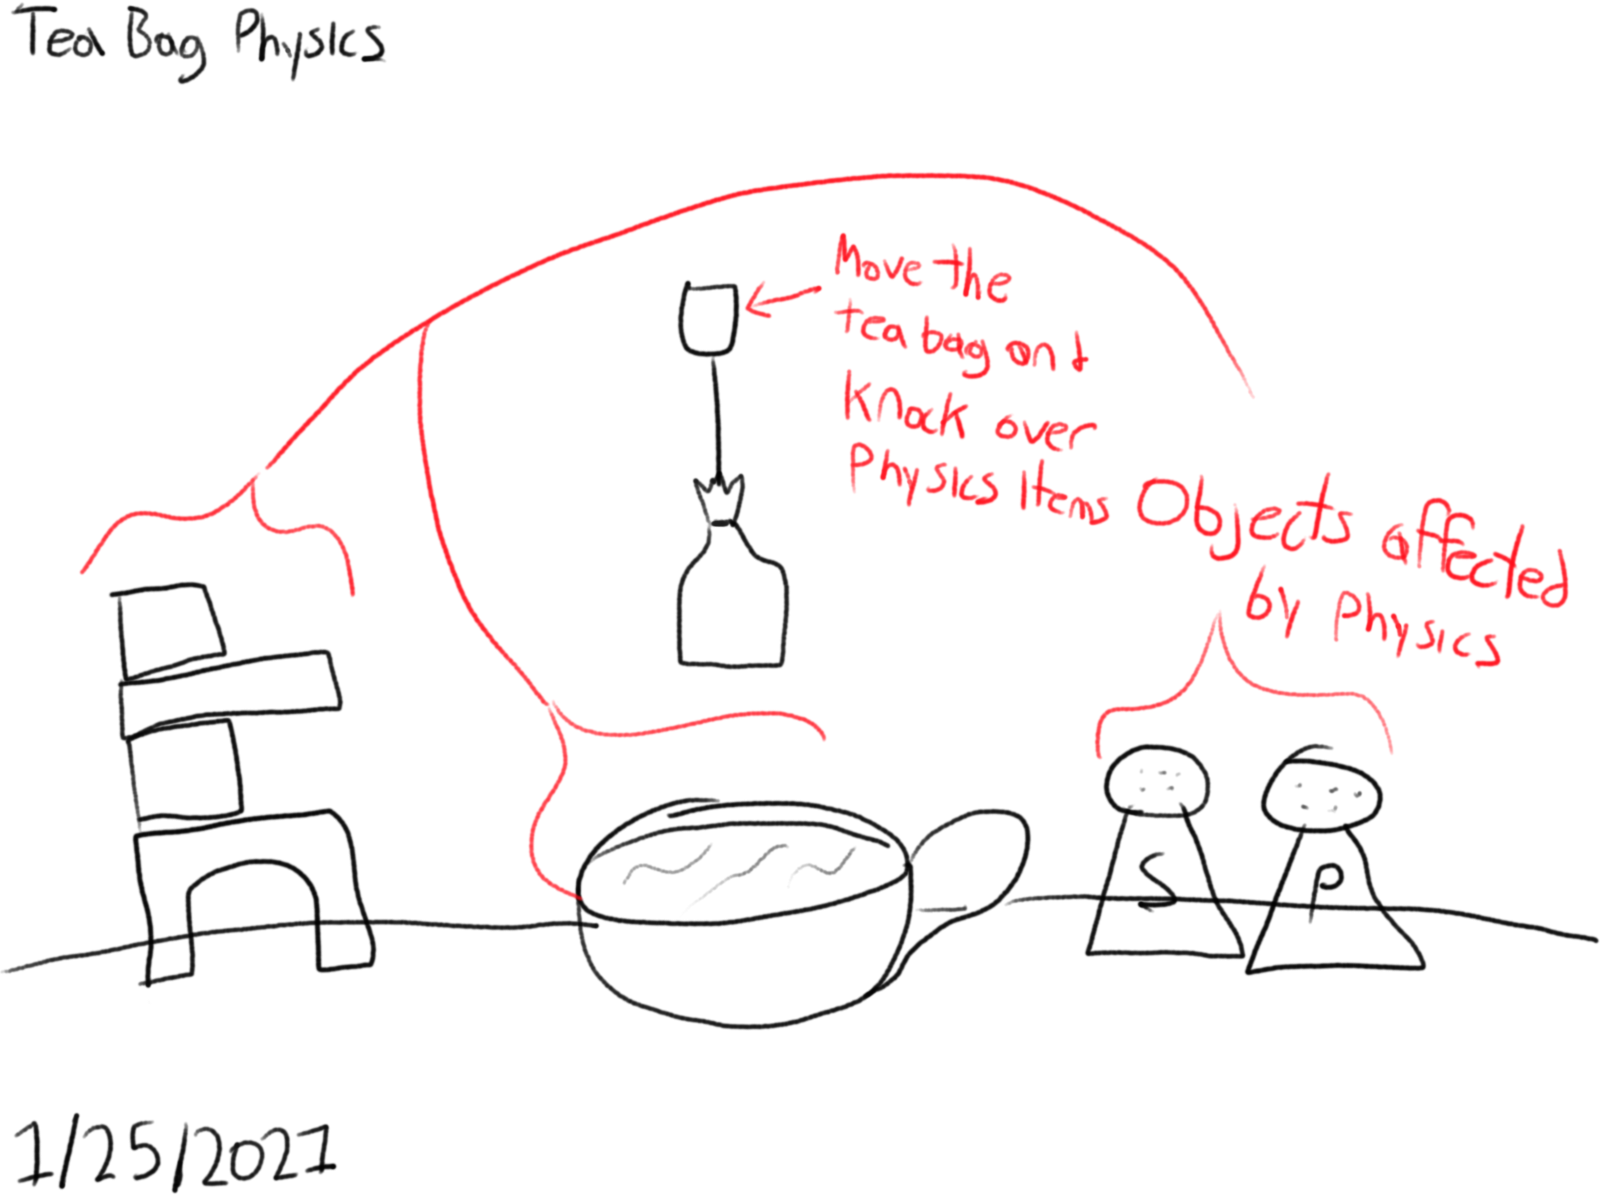 Tea Bag Physics
Move the
tea bag and
Knock over
Physics Items
Objects affected
by Physics
S
P
1/25/2021